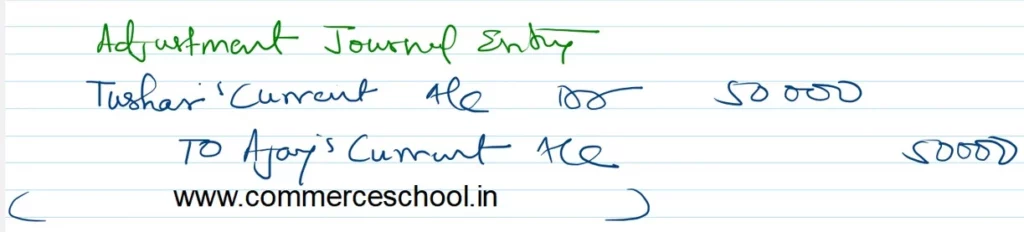 Adjustment Journal Entry
Tushar's Current A/c Dr 50000
To Ajay's Current A/c 50000
( www.commerceschool.in )